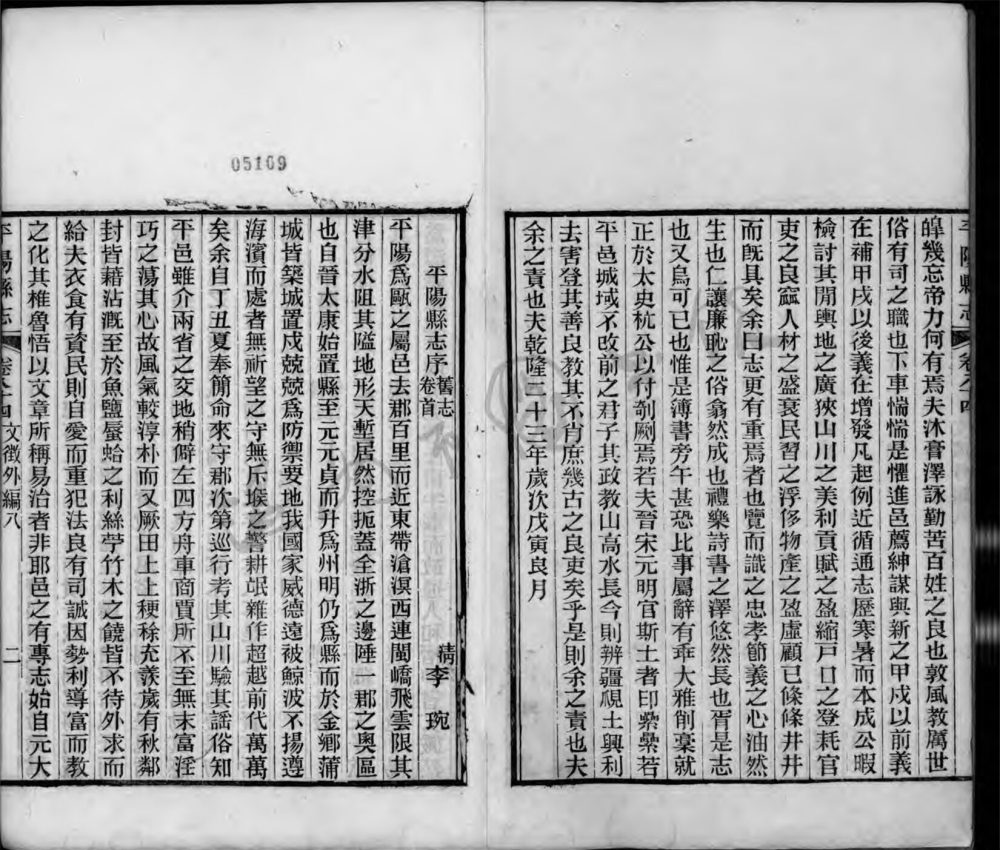 05169
平陽縣志 卷八十四
皥幾忘帝力何有焉夫沐膏澤詠勤苦百姓之良也敦風教厲世
俗有司之職也下車惴惴是懼進邑薦紳謀輿新之甲戌以前義
在補甲戌以後義在增發凡起例近循通志歷寒暑而本成公暇
檢討其閒輿地之廣狹山川之美利貢賦之盈縮戸口之登耗官
吏之良窳人材之盛衰民習之浮侈物產之盈虛顧已條條井井
而旣具矣余曰志更有重焉者也覽而識之忠孝節義之心油然
生也仁讓廉恥之俗翕然成也禮樂詩書之澤悠然長也胥是志
也又烏可已也惟是簿書旁午甚恐比事屬辭有乖大雅削稾就
正於太史杭公以付剞劂焉若夫晉宋元明官斯土者印纍纍若
平邑城域不改前之君子其政教山高水長今則辨疆覘土興利
去害登其善良教其不肖庶幾古之良吏矣乎是則余之責也夫
余之責也夫乾隆二十三年歲次戊寅良月
平陽縣志序 舊志卷首
淸李 琬
平陽爲甌之屬邑去郡百里而近東帶滄溟西連閩嶠飛雲限其
津分水阻其隘地形天塹居然控扼蓋全浙之邊陲一郡之奧區
也自晉太康始置縣至元元貞而升爲州明仍爲縣而於金鄉蒲
城皆築城置戍兢兢爲防禦要地我國家威德遠被鯨波不揚遵
海濱而處者無祈望之守無斥堠之警耕氓雜作超越前代萬萬
矣余自丁丑夏奉簡命來守郡次第巡行考其山川驗其謠俗知
平邑雖介兩省之交地稍僻左四方舟車商賈所不至無末富淫
巧之蕩其心故風氣較淳朴而又厥田上上稉稌充羨歲有秋鄰
封皆藉沾漑至於魚鹽蜃蛤之利絲苧竹木之饒皆不待外求而
給夫衣食有資民則自愛而重犯法良有司誠因勢利導富而教
之化其椎魯悟以文章所稱易治者非耶邑之有專志始自元大
平陽縣志 卷八十四 文徵外編八 二